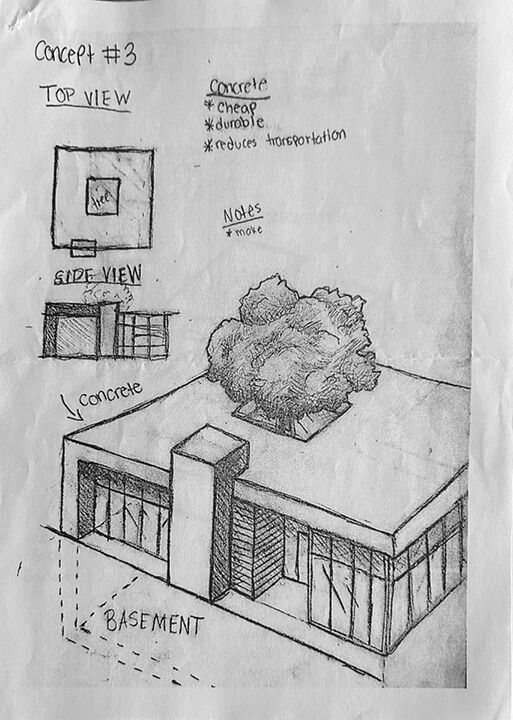 Concept #3
TOP VIEW
Concrete
* cheap
* durable
* reduces transportation
tree
Notes
* make
SIDE VIEW
concrete
BASEMENT